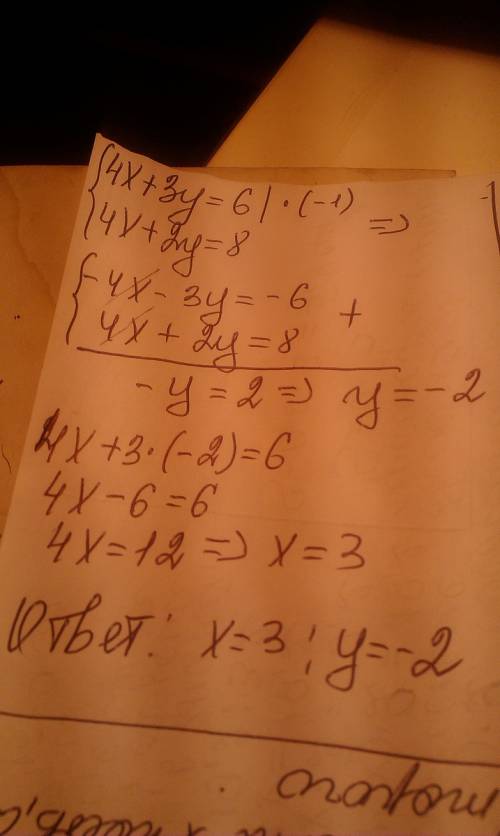 {4x+3y=6|·(-1)
{4x+2y=8 =>
{-4x-3y=-6
{4x+2y=8 +
-y=2=> y=-2
4x+3·(-2)=6
4x-6=6
4x=12=> x=3
Ответ: x=3; y=-2